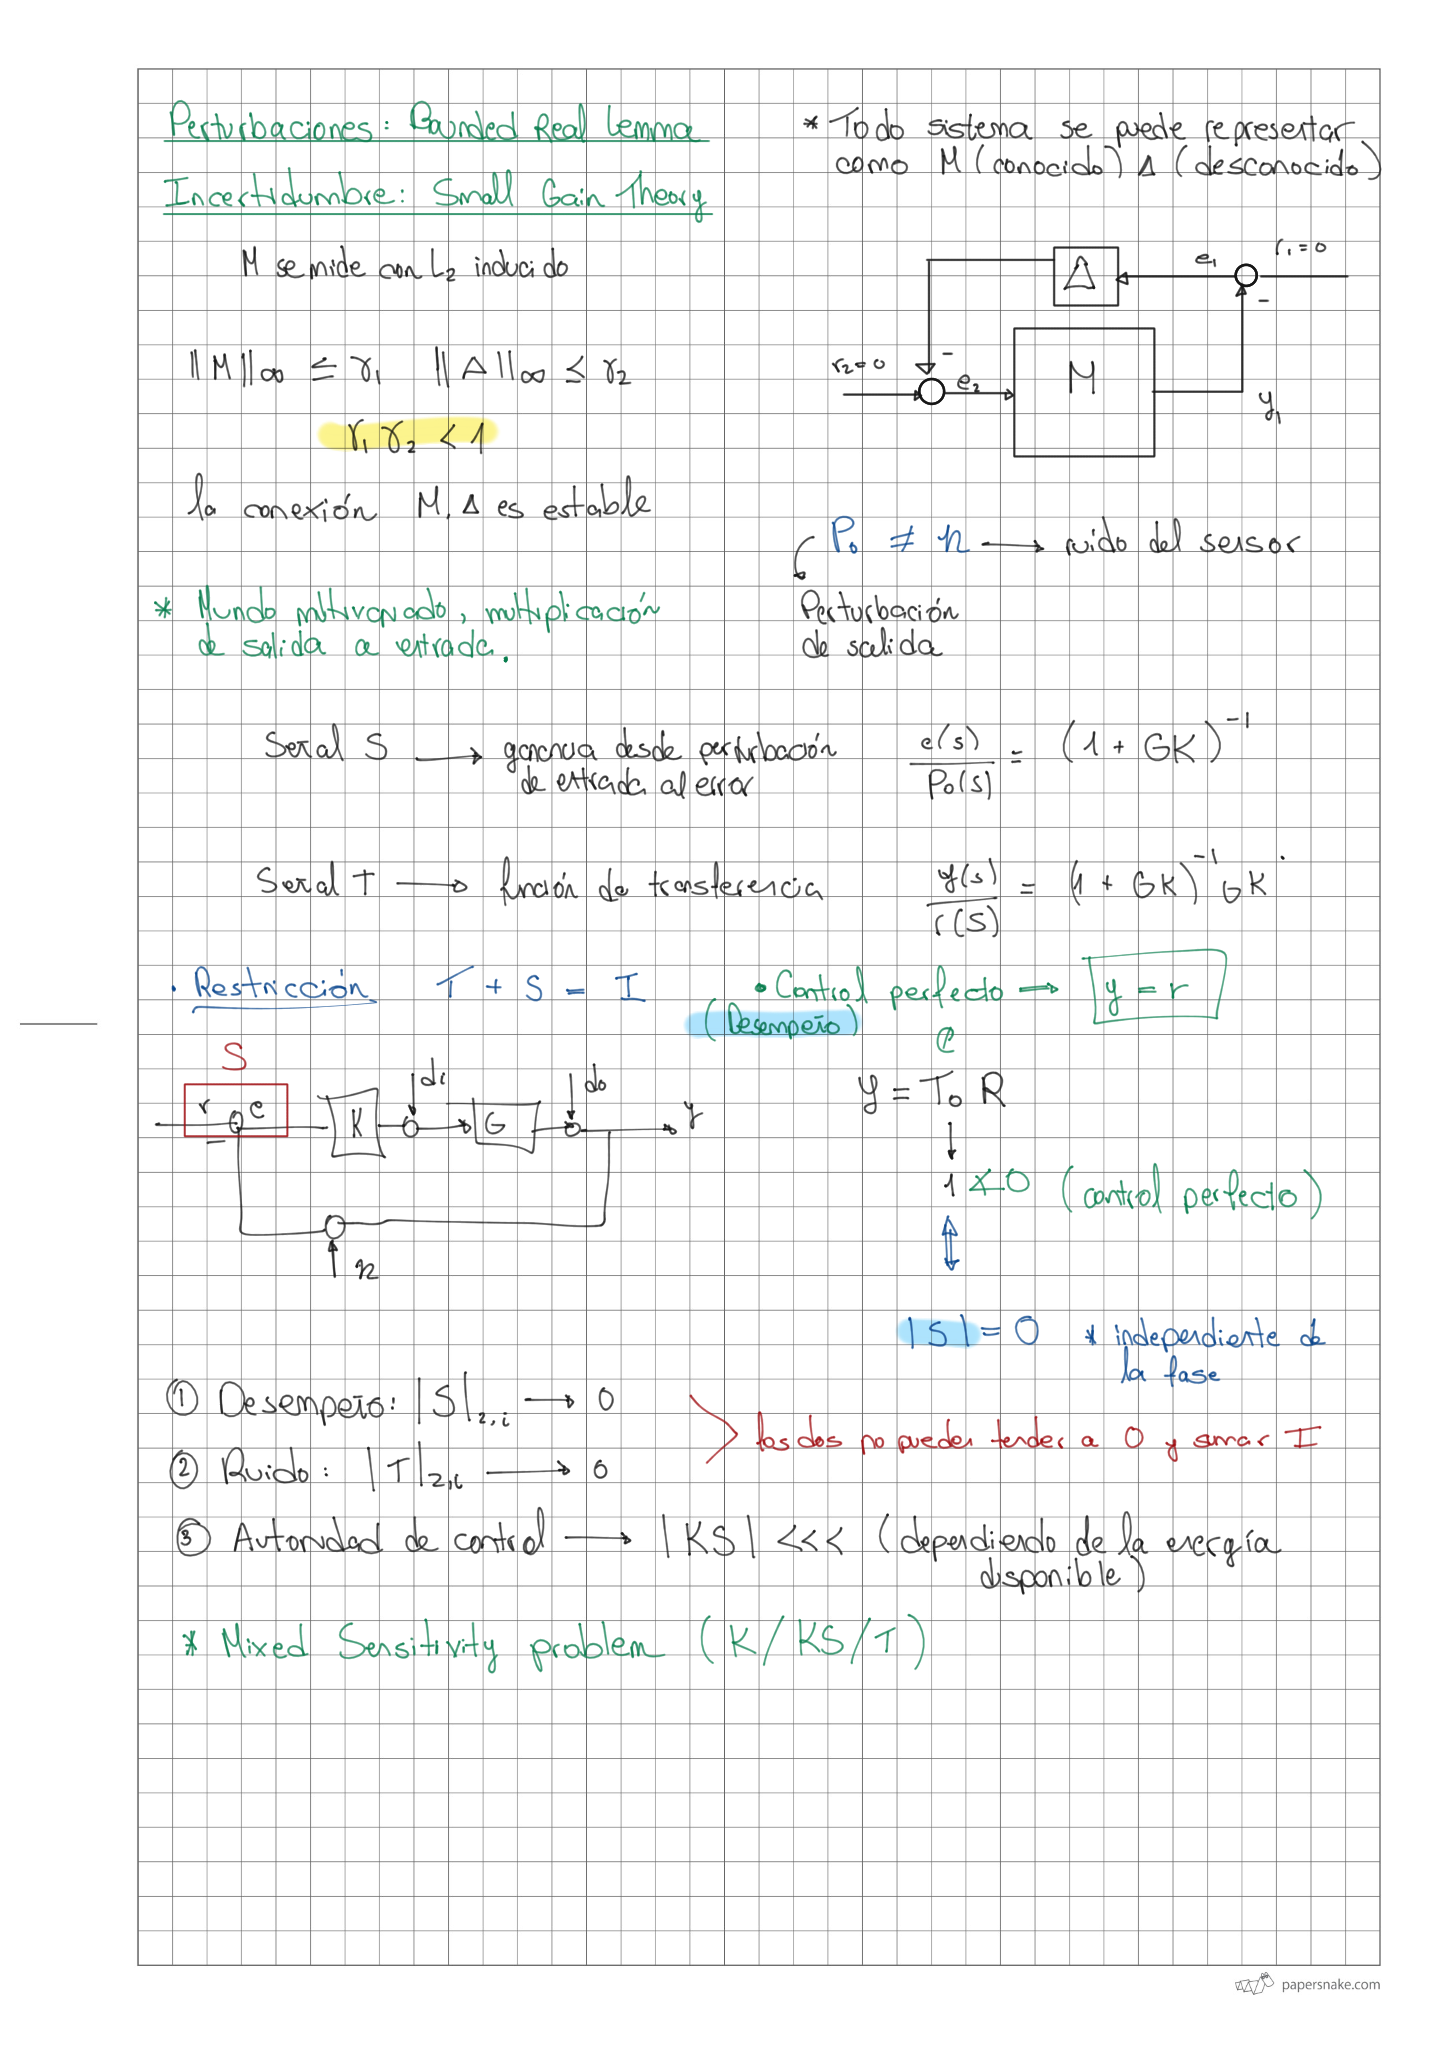 Perturbaciones: Bounded Real Lemma
Incertidumbre: Small Gain Theory
M se mide con L₂ inducido
||M||∞ ≤ γ₁   ||Δ||∞ ≤ γ₂
γ₁ γ₂ < 1
la conexión M, Δ es estable
* Todo sistema se puede representar
como M (conocido) Δ (desconocido)
Δ
e₁
r₁ = 0
-
r₂ = 0
-
e₂
M
y₁
P₀ ≠ n → ruido del sensor
Perturbación
de salida
* Mundo multivariado, multiplicación
de salida a entrada.
Señal S → ganancia desde perturbación
de entrada al error
e(s)/P₀(s) = (1 + GK)⁻¹
Señal T → función de transferencia
y(s)/r(s) = (1 + GK)⁻¹ GK
• Restricción   T + S = I
• Control perfecto → y = r
(Desempeño)
S
r
e
-
K
di
G
do
y
n
Y = T₀ R
↓
1 ∡0 (control perfecto)
|S| = 0   * independiente de
la fase
① Desempeño: |S|₂,ᵢ → 0
② Ruido: |T|₂,ᵢ → 0
los dos no pueden tender a 0 y sumar I
③ Autoridad de control → |KS| <<< (dependiendo de la energía
disponible)
* Mixed Sensitivity problem (K/KS/T)
papersnake.com